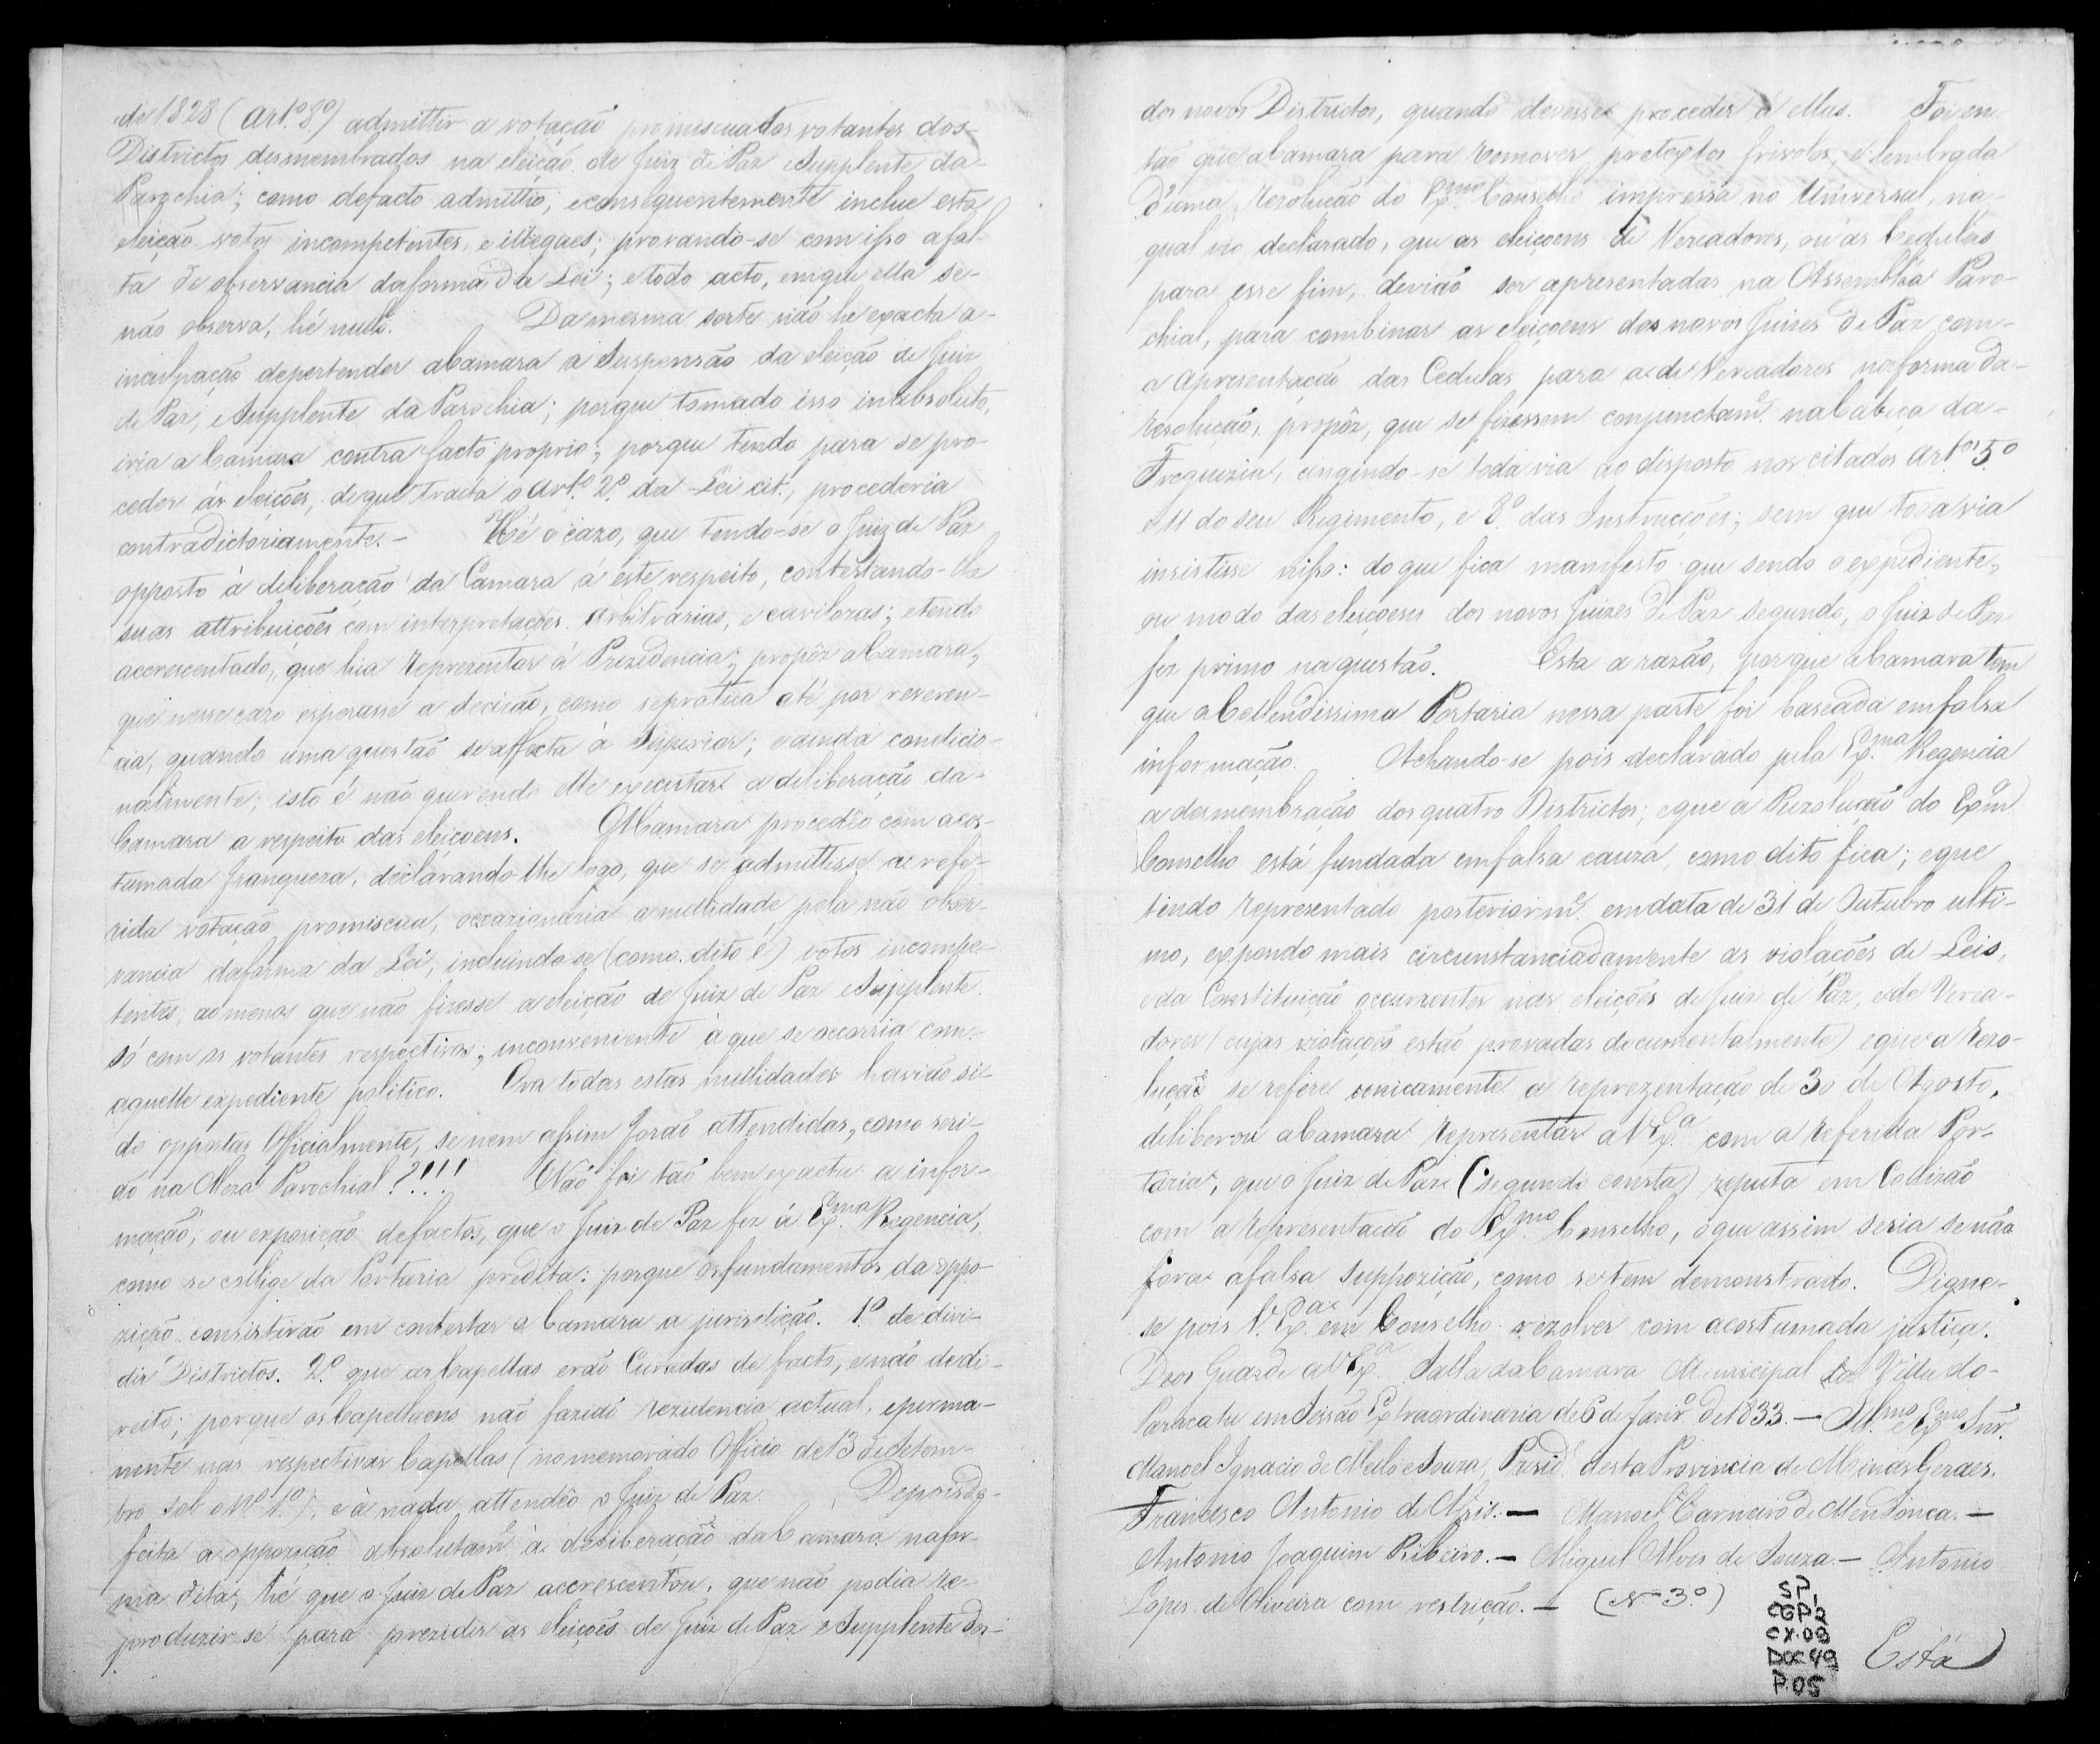 de 1828 (Art.º 8.º) admittir a votação promiscua dos votantes dos-
Districtos desmembrados na eleição de Juiz de Paz e Supplente da-
Parochia; como defacto admittio, econsequentemente inclue esta
eleição votos incompetentes, e illegaes; provando-se com isso afal-
ta de observancia daforma da Lei; etodo acto, emque ella se-
não observa, hé nullo. Damesma sorte não he exacta a-
inculpação depertender aCamara a Suspensão da eleição de Juiz
de Paz, eSupplente da Parochia; porque tomado isso inabsoluto,
iria a Camara contra facto proprio; porque tendo para se pro-
ceder ás eleições, deque tracta o Art.º 2.º da Lei cit., procederia
contradictoriamente. - Hé o cazo, que tendo-se o Juiz de Paz
opposto à deliberação da Camara á este respeito, contestando-lhe
suas attribuições com interpretações arbitrarias, e cavilozas; etendo
accrescentado, que hia representar á Prezidencia, propôz aCamara,
que nesse cazo esperasse a decizão, como sepratica até por reveren-
cia, quando uma questão se affecta á Superior; eainda condicio-
nalmente; isto é não querendo elle executar a deliberação da-
Camara a respeito das eleiçoens. ACamara procedêo com acos-
tumada franqueza, declarando-lhe logo, que se admittisse a refe-
rida votação promiscua, occazionaria a nullidade pela não obser-
vancia daforma da Lei, incluindo-se (como dito é) votos incompe-
tentes, aomenos que não fizesse a eleição de Juiz de Paz eSupplente
só com os votantes respectivos; inconveniente á que se occorria com-
aquelle expediente politico. Ora todas estas nullidades havião si-
do oppostas Officialmente, se nem assim forão attendidas, como seri-
ão na Meza Parochial?!!! Não foi tão bem exacta a infor-
mação, ou exposição defactos, que o Juiz de Paz fez á Ex.ma Regencia,
como se collige da Portaria predita: porque osfundamentos da oppo-
zição consistirão em contestar a Camara a jurisdicção. 1.º de divi-
dir Districtos. 2.º que asCapellas erão Curadas de facto, enão dedi-
reito; porque osCapellaens não fazião rezidencia actual, eperma-
nente nas respectivas Capellas (nomemorado Officio de 13 deSetem-
bro sob o N.º 1.º), e à nada attendêo o Juiz de Paz. Depois de-
feita a oppozição absolutam.e á deliberação daCamara nafor-
ma dita, hé que o Juiz de Paz accrescentou, que não podia re-
produzir-se para prezidir as eleições de Juiz de Paz e Supplente dos-
dos novos Districtos, quando devesse proceder á ellas. Foi en-
tão que aCamara para remover pretextos frivolos, e lembrada
d'uma rezolução do Ex.mo Conselho impressa no Universal, na-
qual vio declarado, que as eleiçoens de Vereadores, ou as Cedulas
para esse fim, devião ser apresentadas na Assemblea Paro-
chial, para combinar as eleiçoens dos novos Juizes de Paz com-
a apresentação das Cedulas para a de Vereadores naforma da-
rezolução, propôz, que se fizessem conjunctam.e naCabeça da-
Freguezia, cingindo-se todavia ao disposto nos citados Art.os 5.º
e 11 do seu Regimento, e 8.º das Instrucções; sem que todavia
insistisse nisso: do que fica manifesto que sendo o expediente,
ou modo das eleiçoens dos novos Juizes de Paz segundo, o Juiz de Paz
fez primo naquestão. Esta a razão, porque aCamara tem
que aCollendissima Portaria nessa parte foi baseada emfalsa
informação. Achando-se pois declarado pela Ex.ma Regencia
a desmembração dos quatro Districtos; eque a Rezolução do Exm.º
Conselho está fundada emfalsa cauza, como dito fica; eque
tendo representado posteriorm.e emdata de 31 de Outubro ulti-
mo, expondo mais circunstanciadamente as violações de Leis,
eda Constituição occurrentes nas eleições de Juiz de Paz, ede Verea-
dores (cujas violações estão provadas documentalmente) eque a rezo-
lução se refere unicamente a reprezentação de 30 de Agosto,
deliberou aCamara representar a V. Ex.a com a referida Por-
taria, que o Juiz de Paz (segundo consta) reputa em Collizão
com a representação do Ex.mo Conselho, o que assim seria se não
fora afalsa suppozição, como setem demonstrado. Digne-
se pois V. Ex.a em Conselho rezolver com acostumada justiça.
Deos Guarde a V. Ex.a Salla daCamara Municipal da Villa do-
Paracatu emSeisão Extraordinaria de 6 de Janr.º de 1833. - Ill.mo e Ex.mo Snr.
Manoel Ignacio de Mello eSouza, Presid.e desta Provincia de Minas Geraes.
Francisco Antonio de Assis. - Manoel Carneiro de Mendonca. -
Antonio Joaquim Ribeiro. - Miguel Alves de Souza. - Antonio
Lopes de Oliveira com restrição. - (N.º 3.º)
SP
CGP2
CX.09
DOC 49
P.05
Está